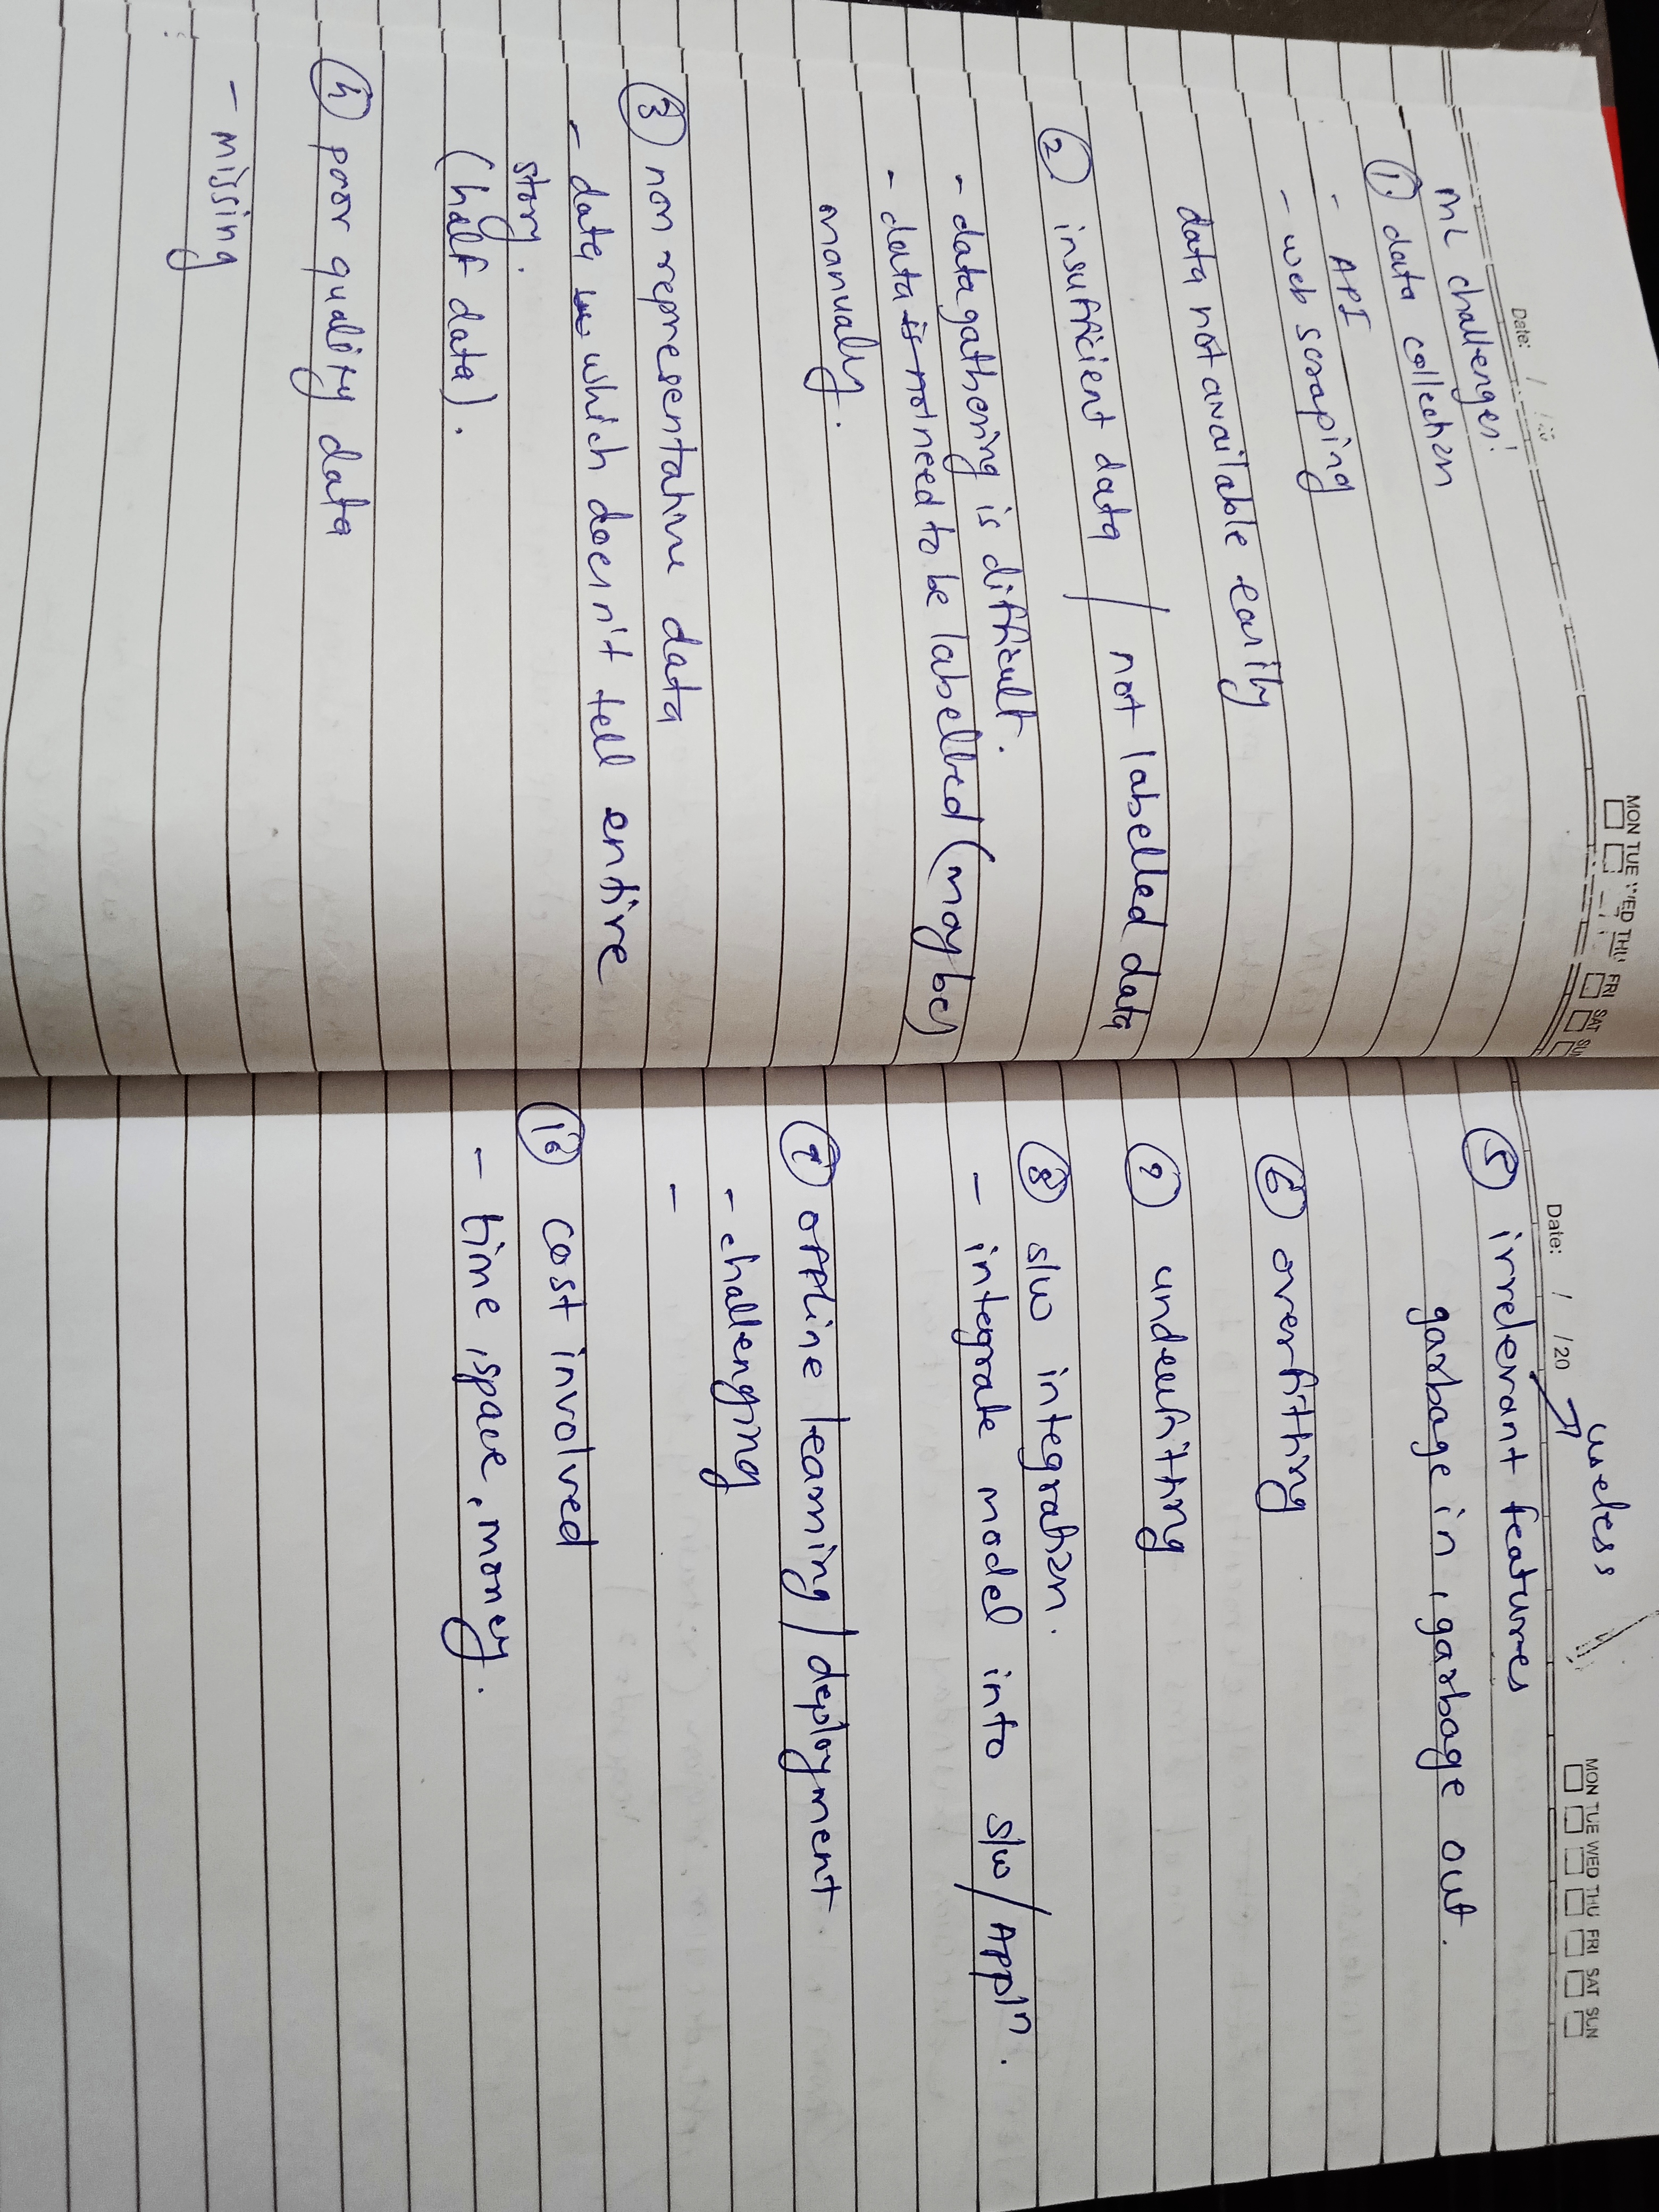 Date: / /20
MON TUE WED THU FRI SAT SUN
ML challenges!
① data collection
- API
- web scraping
data not available easily
② insufficient data / not labelled data
- data gathering is difficult.
- data is not need to be labelled (maybe)
manually.
③ non representative data
- data which doesn't tell entire
story.
(half data).
④ poor quality data
- missing
useless
Date: / /20
MON TUE WED THU FRI SAT SUN
⑤ irrelevant features
garbage in, garbage out.
⑥ overfitting
⑦ underfitting
⑧ s/w integration.
- integrate model into s/w / Appln.
⑨ offline learning / deployment
- challenging
-
⑩ cost involved
- time, space, money.